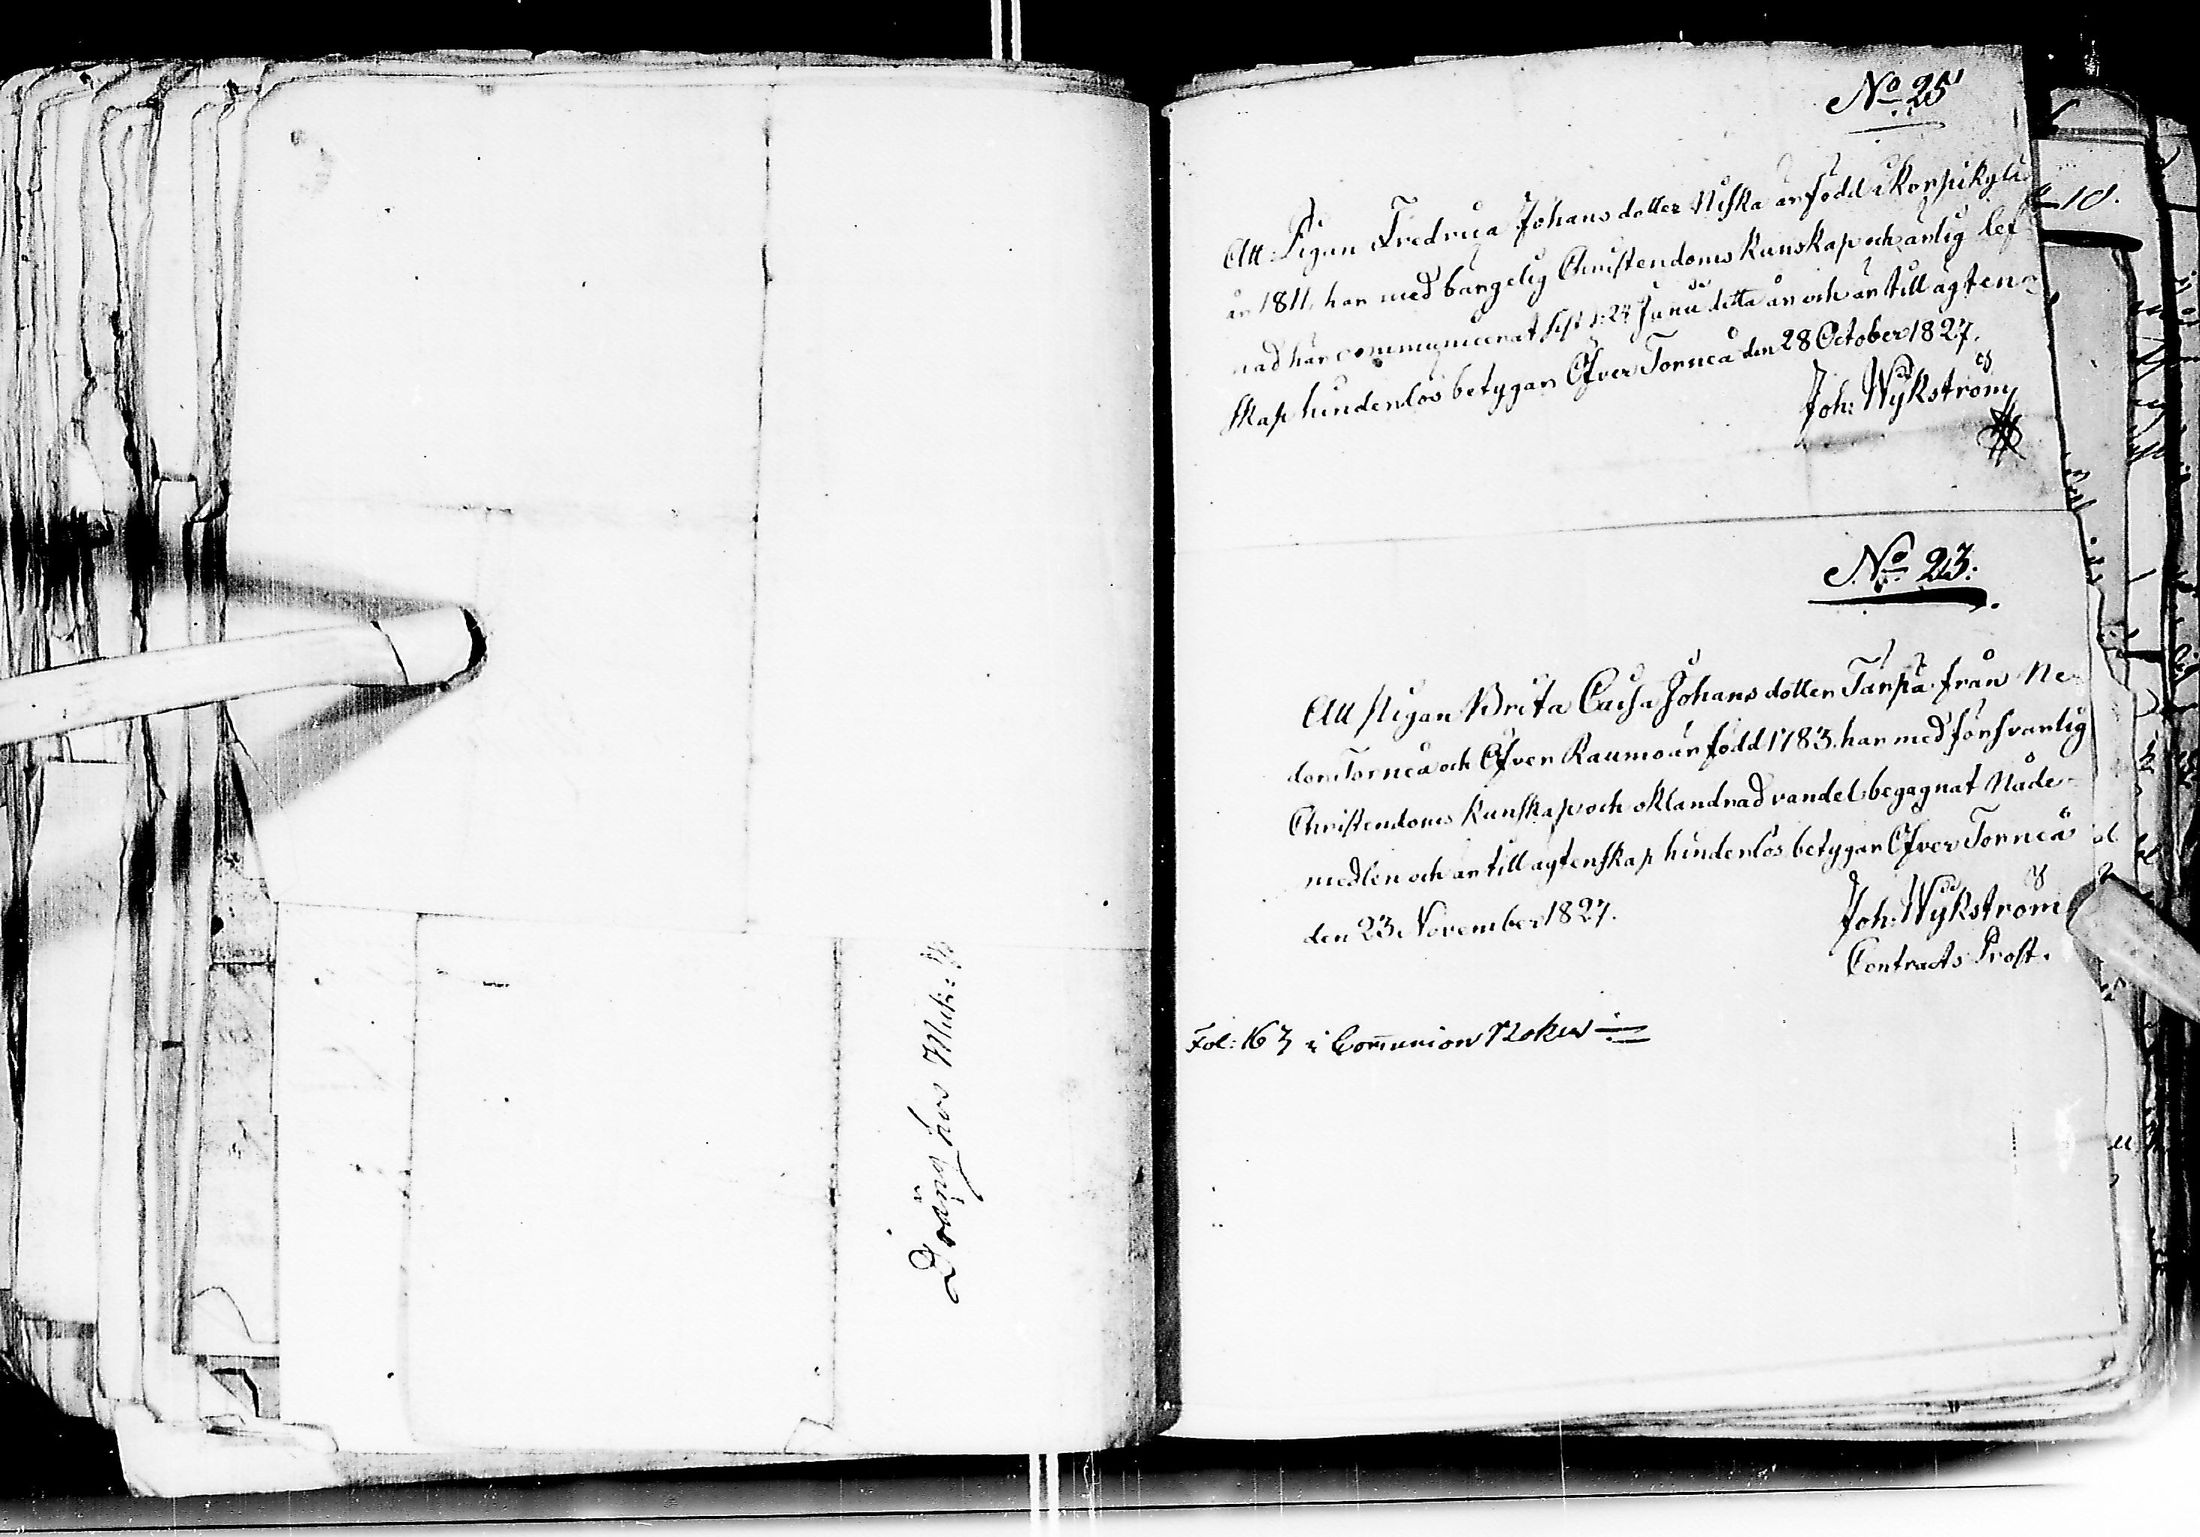 Dräng hos
No 25
Att Pigan Fredrica Johans dotter Niska är född i Korpikylä
år 1811, har med bärgelig Christendoms Kunskap och ärlig lef
nad här communicerat sist d: 24 Junii detta år och är till ägten-
skap hinderlös betygar Öfver Torneå den 28 October 1827.
Joh: Wykström
10.
No 23.
Att pigan Brita Caisa Johans dotter Tarpa från Ne-
der Torneå och Öfver Raumo är född 1783, har med försvarlig
Christendoms Kunskap och oklandrad vandel begagnat Nåde-
medlen och är till ägtenskap hinderlös betygar Öfver Torneå
den 23 November 1827.
Joh: Wykström
Contracts Prost.
Fol: 163 i Com̄union Boken